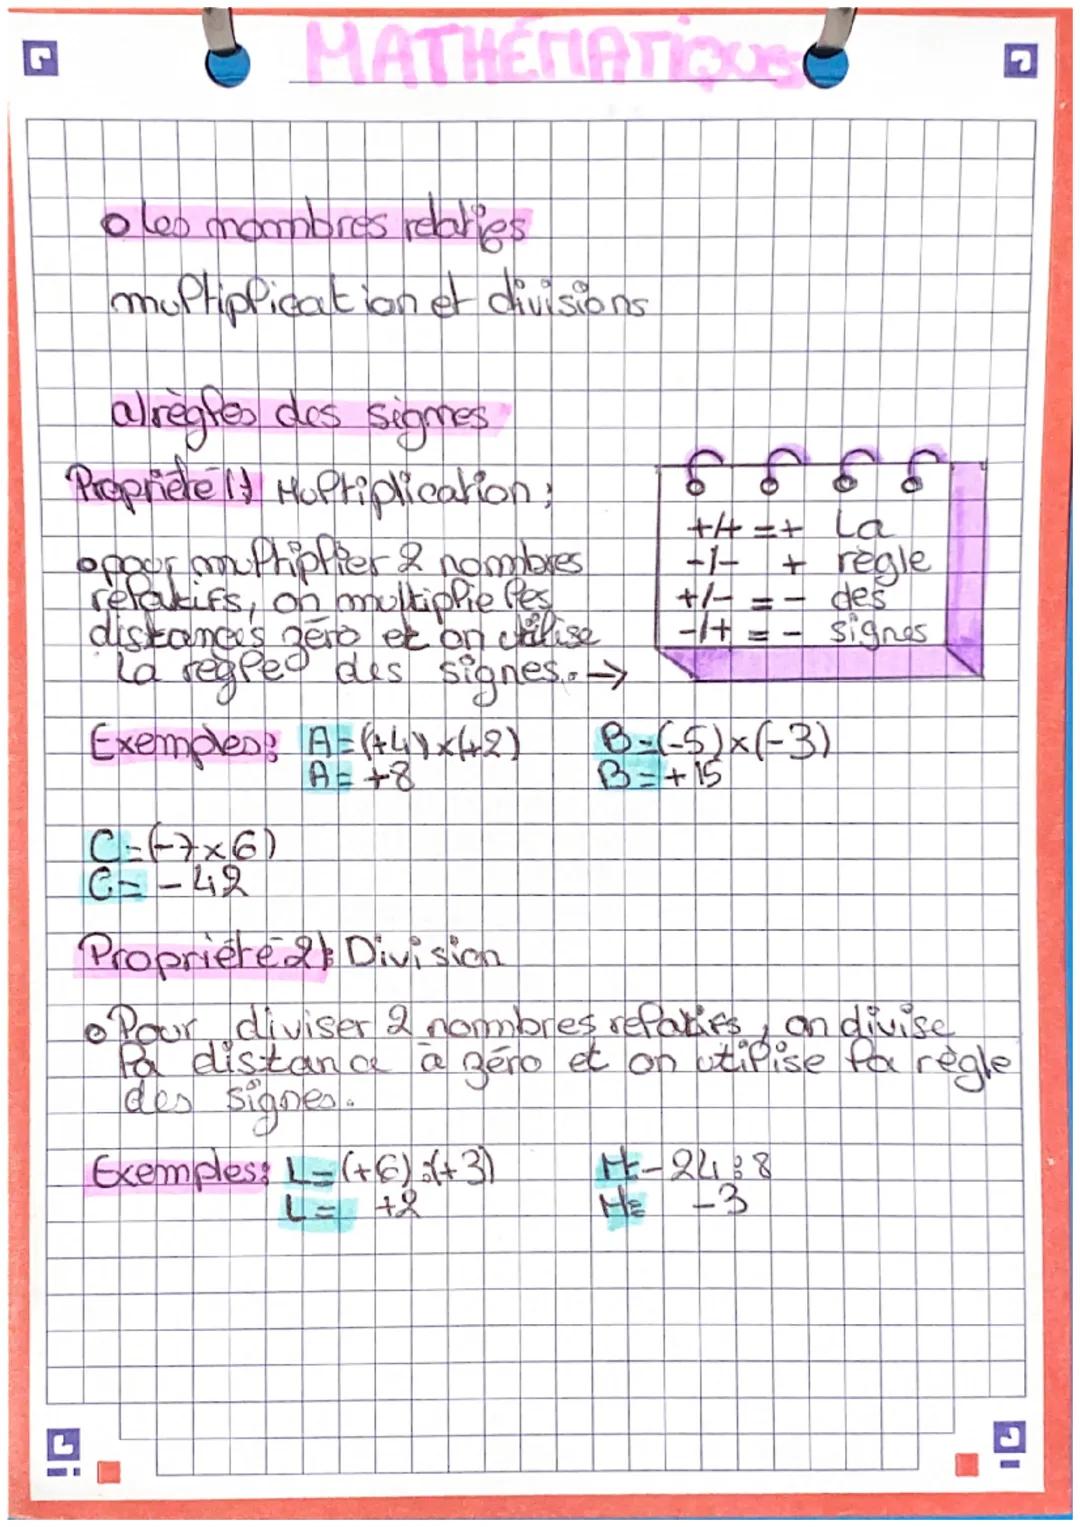 MATHÉMATIQUES
les nombres relatifs
multiplication et divisions
a) règles des signes
Propriété 1: Multiplication:
pour multiplier 2 nombres
relatifs, on multiplie les
distances zéro et on utilise
la règles des signes. →
+/+ = + La
-/- + règle
+/- = - des
-/+ = - signes
Exemples: A=(+4)×(+2) B=(-5)×(-3)
A= +8 B=+15
C=(-7×6)
C= -42
Propriété 2: Division
Pour diviser 2 nombres relatifs, on divise
la distance à zéro et on utilise la règle
des signes.
Exemples: L=(+6):(+3) H=-24:8
L= +2 H= -3